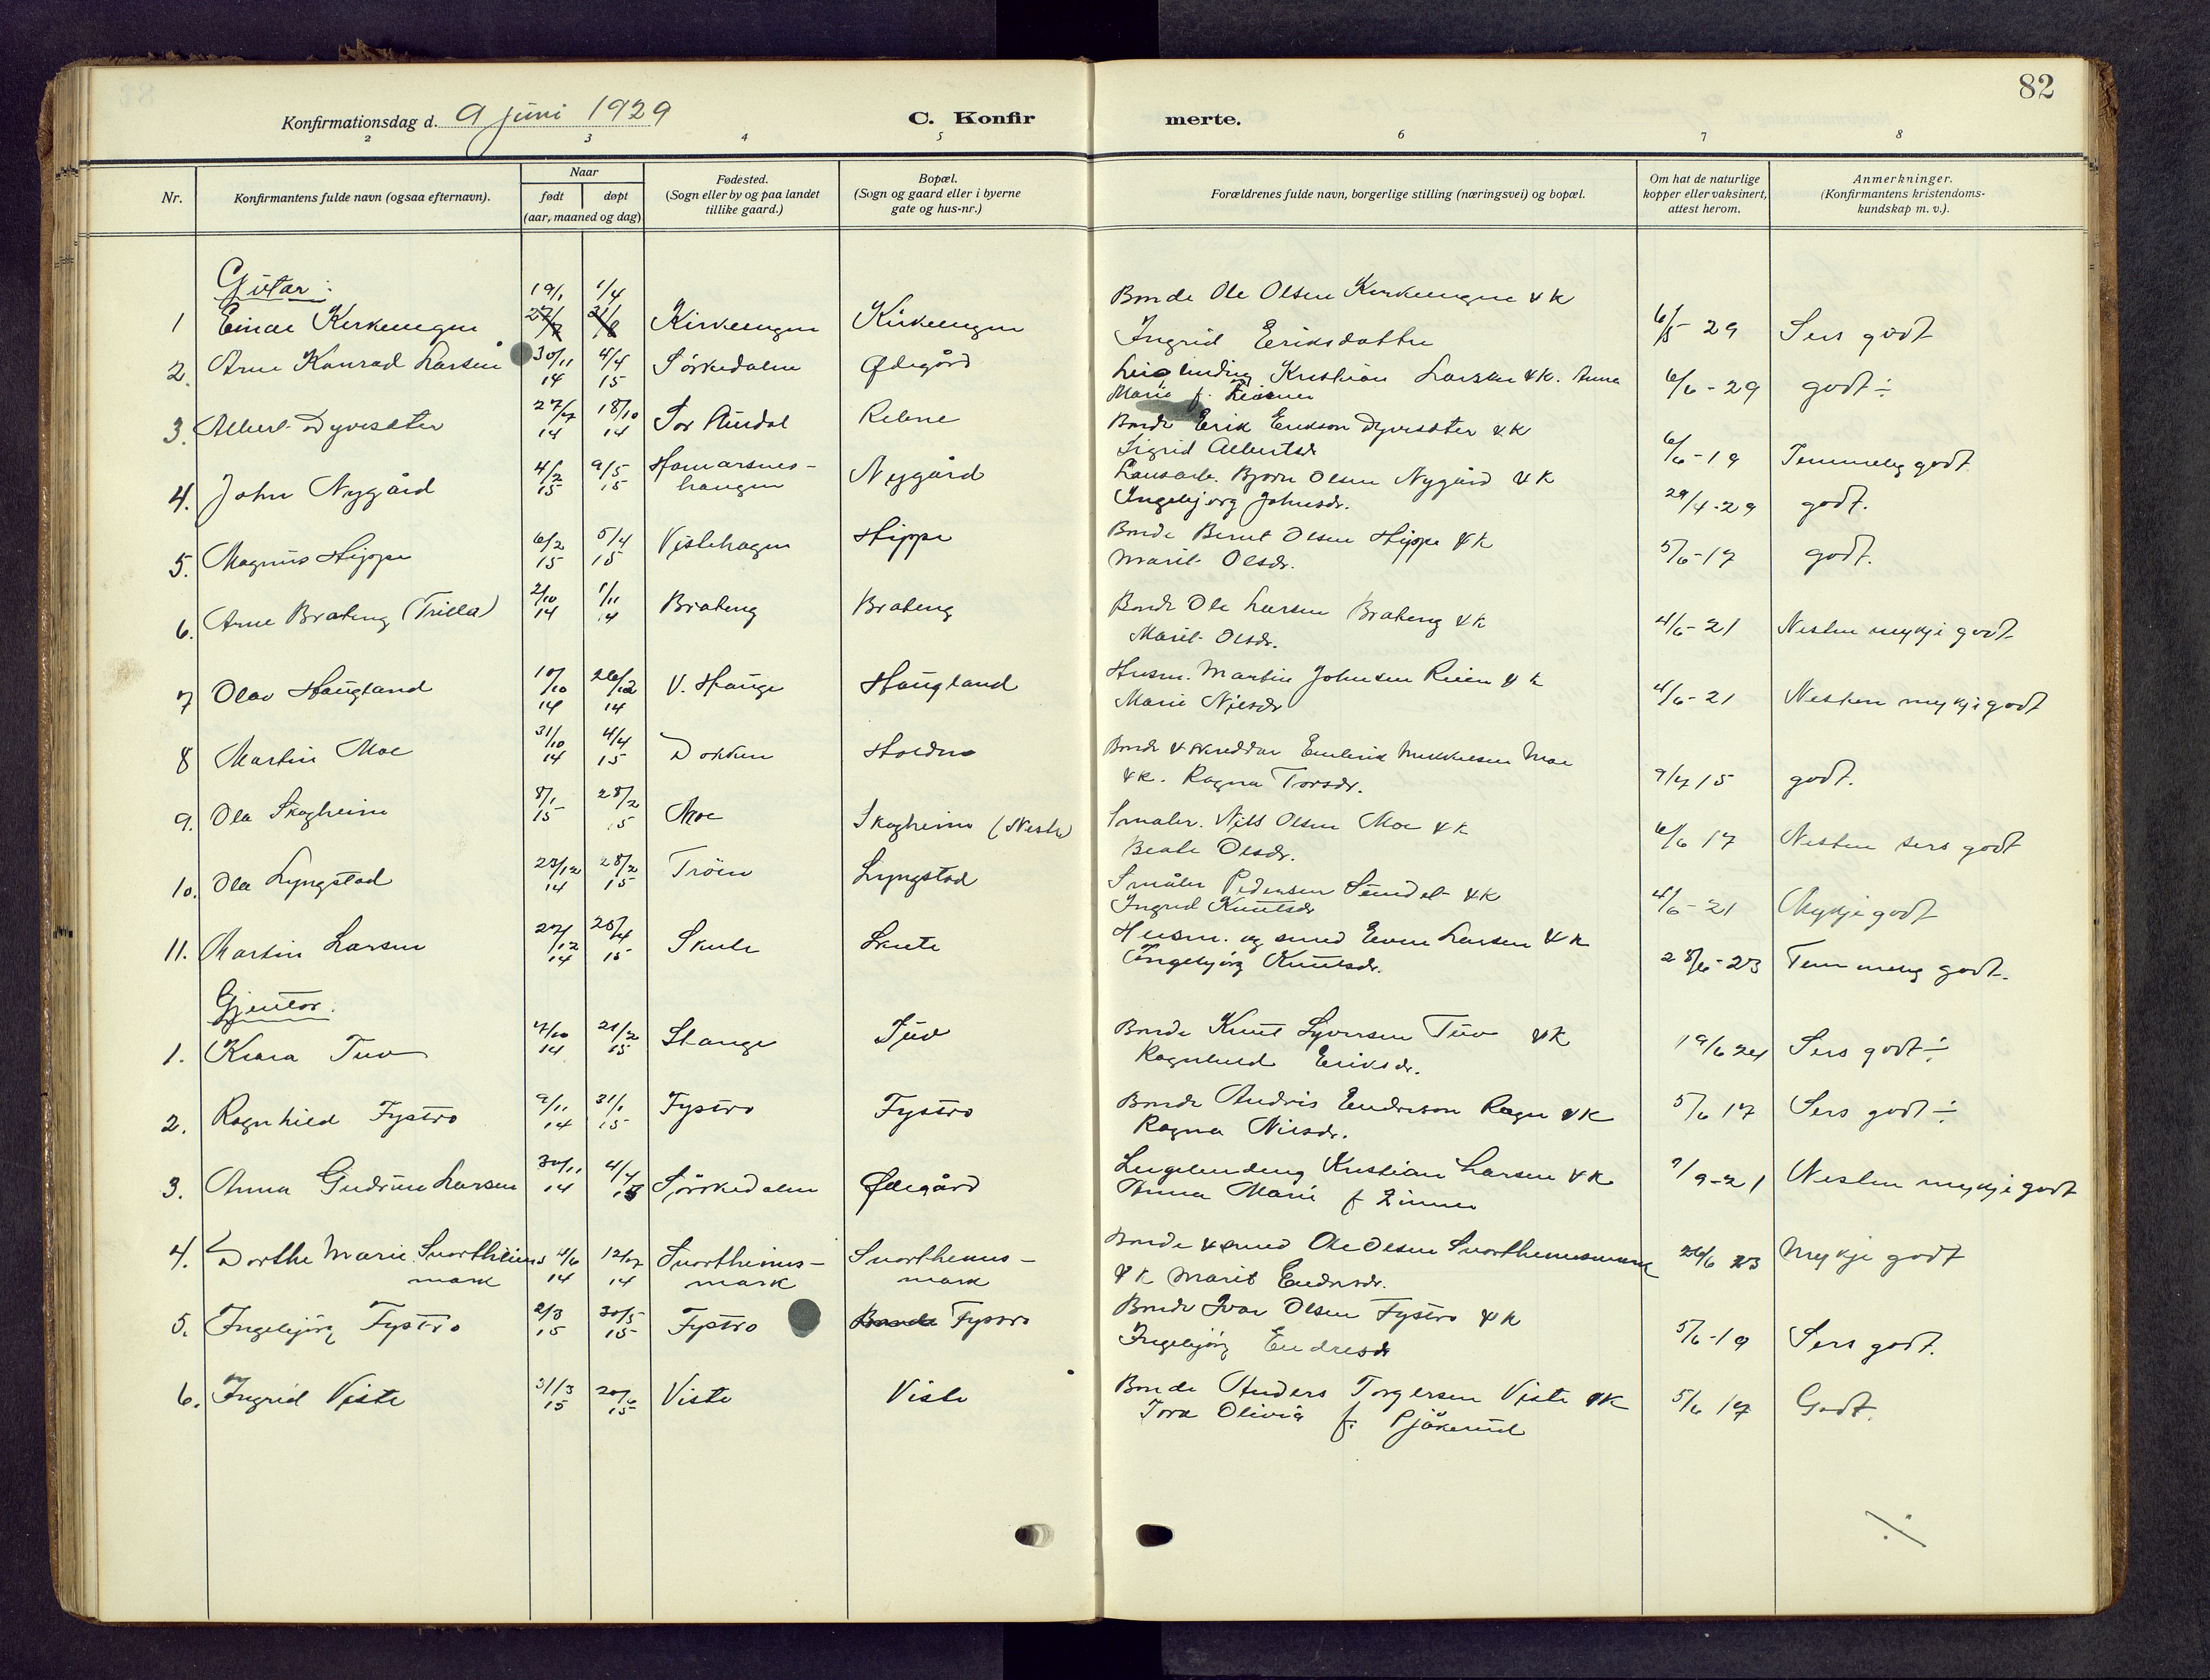 82
Konfirmationsdag d. 9 juni 1929
C. Konfirmerte.
2 3 4 5 6 7 8
Nr.
Konfirmantens fulde navn (ogsaa efternavn).
Naar
født døpt
(aar, maaned og dag)
Fødested.
(Sogn eller by og paa landet
tillike gaard.)
Bopæl.
(Sogn og gaard eller i byerne
gate og hus-nr.)
Forældrenes fulde navn, borgerlige stilling (næringsvei) og bopæl.
Om hat de naturlige
kopper eller vaksinert,
attest herom.
Anmerkninger.
(Konfirmantens kristendoms-
kundskap m. v.).
Gutar:
19/1 1/4 Bonde Ole Olsen Kirkeengen & K
1 Einar Kirkeengen Kirkeengen Kirkeengen Ingrid Eriksdatter 6/5-29 Sers godt
2. Arne Konrad Larsen 30/11 14 4/4 15 Sørkedalen Ødegård Kristian Larsen & K. Anna 6/6-29 godt÷
Marie f.
3. Albert Dyveseter 27/7 14 18/10 14 Sør Aurdal Bonde Erik Erikson Dyveseter & K
Sigrid Albertsdr 6/6-19 Temmeleg godt
4. John Nygård 4/2 15 9/5 15 Nygård Bjørn Olsen Nygård & K
haugen Ingebjørg Johnsdr. 29/4-29 godt.
5. Magnus Hippe 6/2 15 5/4 15 Vistehagen Hippe Bonde Bernt Olsen Hippe & K
Marit Olsdr. 5/6-17 godt.
6. Arne Brateng (Trilla) 2/10 14 1/11 14 Brateng Brateng Bonde Ole Larsen Brateng & K
Marit Olsdr. 4/6-21 Nesten mykje godt
7 Olav Haugland 10/10 14 26/12 14 V. Hauge Haugland Husm. Martin Johnsen Reien & K
Marie Nilsdr 4/6-21 Nesten mykje godt
8 Martin Moe 31/10 14 4/4 15 Dokken Bonde & skreddar Mikkelsen Moe
& K. Ragna Torsdr. 9/7 15 godt.
9. Ola Skogheim 8/1 15 28/2 15 Moe Skogheim (Neste) Smaler. Nils Olsen Moe & K
Beate Olsdr. 6/6 17 Nesten sers godt
10. Ola Lyngstad 23/12 14 28/2 15 Trøen Lyngstad Småbr Pedersen Sundet & K
Ingrid Knutsdr 4/6-21 Mykje godt
11. Martin Larsen 27/12 14 25/4 15 Skute Skute Husm. og smed Even Larsen & K
Ingebjørg Knutsdr. 28/6-23 Temmeleg godt.
Gjentor.
1. Kiara Tuv 7/10 14 21/2 15 Stange Tuv Bonde Knut Syversen Tuv & K
Ragnhild Eriksdr. 19/6 24 Sers godt÷
2. Ragnhild Fystro 9/11 14 31/1 15 Fystro Fystro Bonde Andris Endreson Rogn & K
Ragna Nilsdr. 5/6 17 Sers godt÷
3. Anna Gudrun Larsen 30/11 14 4/4 15 Sørkedalen Ødegård Leiglending Kristian Larsen & K
Anna Marie f. Zinner 7/9-21 Nesten mykje godt
4. Dorthe Marie Svartheims 4/6 14 12/7 14 Svartheims- Svorthems- Bonde & smed Ole Olsen Svorthemsmark 26/6 23 Mykje godt
mark mark mark & K Marit Endresdr.
5. Ingebjørg Fystro 2/3 15 30/5 15 Fystro Fystro Bonde Ivar Olsen Fystro & K
Ingebjørg Endresdr 5/6-19 Sers godt.
6. Ingrid Viste 31/3 15 20/6 15 Viste Viste Bonde Anders Torgersen Viste & K 5/6 17 Godt.
Tora Olivia f. Pjåkerud